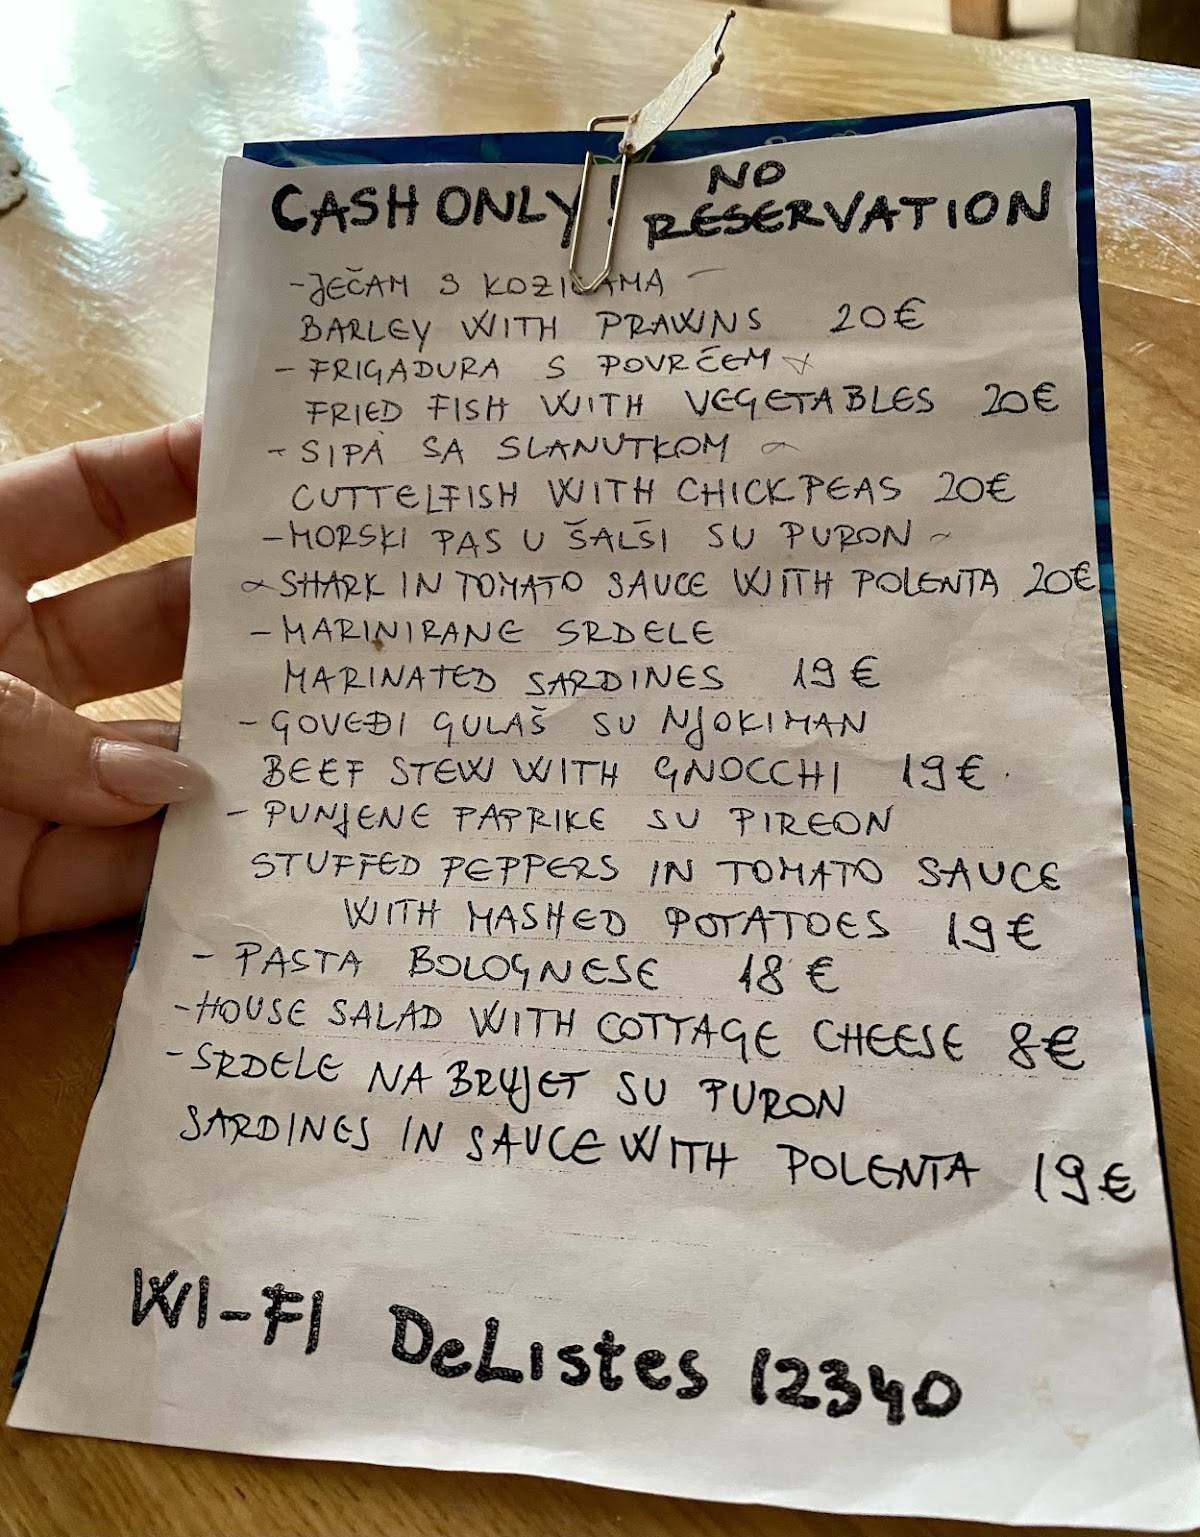 CASH ONLY! NO RESERVATION
- JEČAM S KOZICAMA
BARLEY WITH PRAWNS 20€
- FRIGADURA S POVRČEM
FRIED FISH WITH VEGETABLES 20€
- SIPA SA SLANUTKOM
CUTTELFISH WITH CHICKPEAS 20€
- MORSKI PAS U ŠALŠI SU PURON
SHARK IN TOMATO SAUCE WITH POLENTA 20€
- MARINIRANE SRDELE
MARINATED SARDINES 19€
- GOVEĐI GULAŠ SU NJOKIMAN
BEEF STEW WITH GNOCCHI 19€.
- PUNJENE PAPRIKE SU PIREON
STUFFED PEPPERS IN TOMATO SAUCE
WITH MASHED POTATOES 19€
- PASTA BOLOGNESE 18€
- HOUSE SALAD WITH COTTAGE CHEESE 8€
- SRDELE NA BRUJET SU PURON
SARDINES IN SAUCE WITH POLENTA 19€
WI-FI DeListes 12340